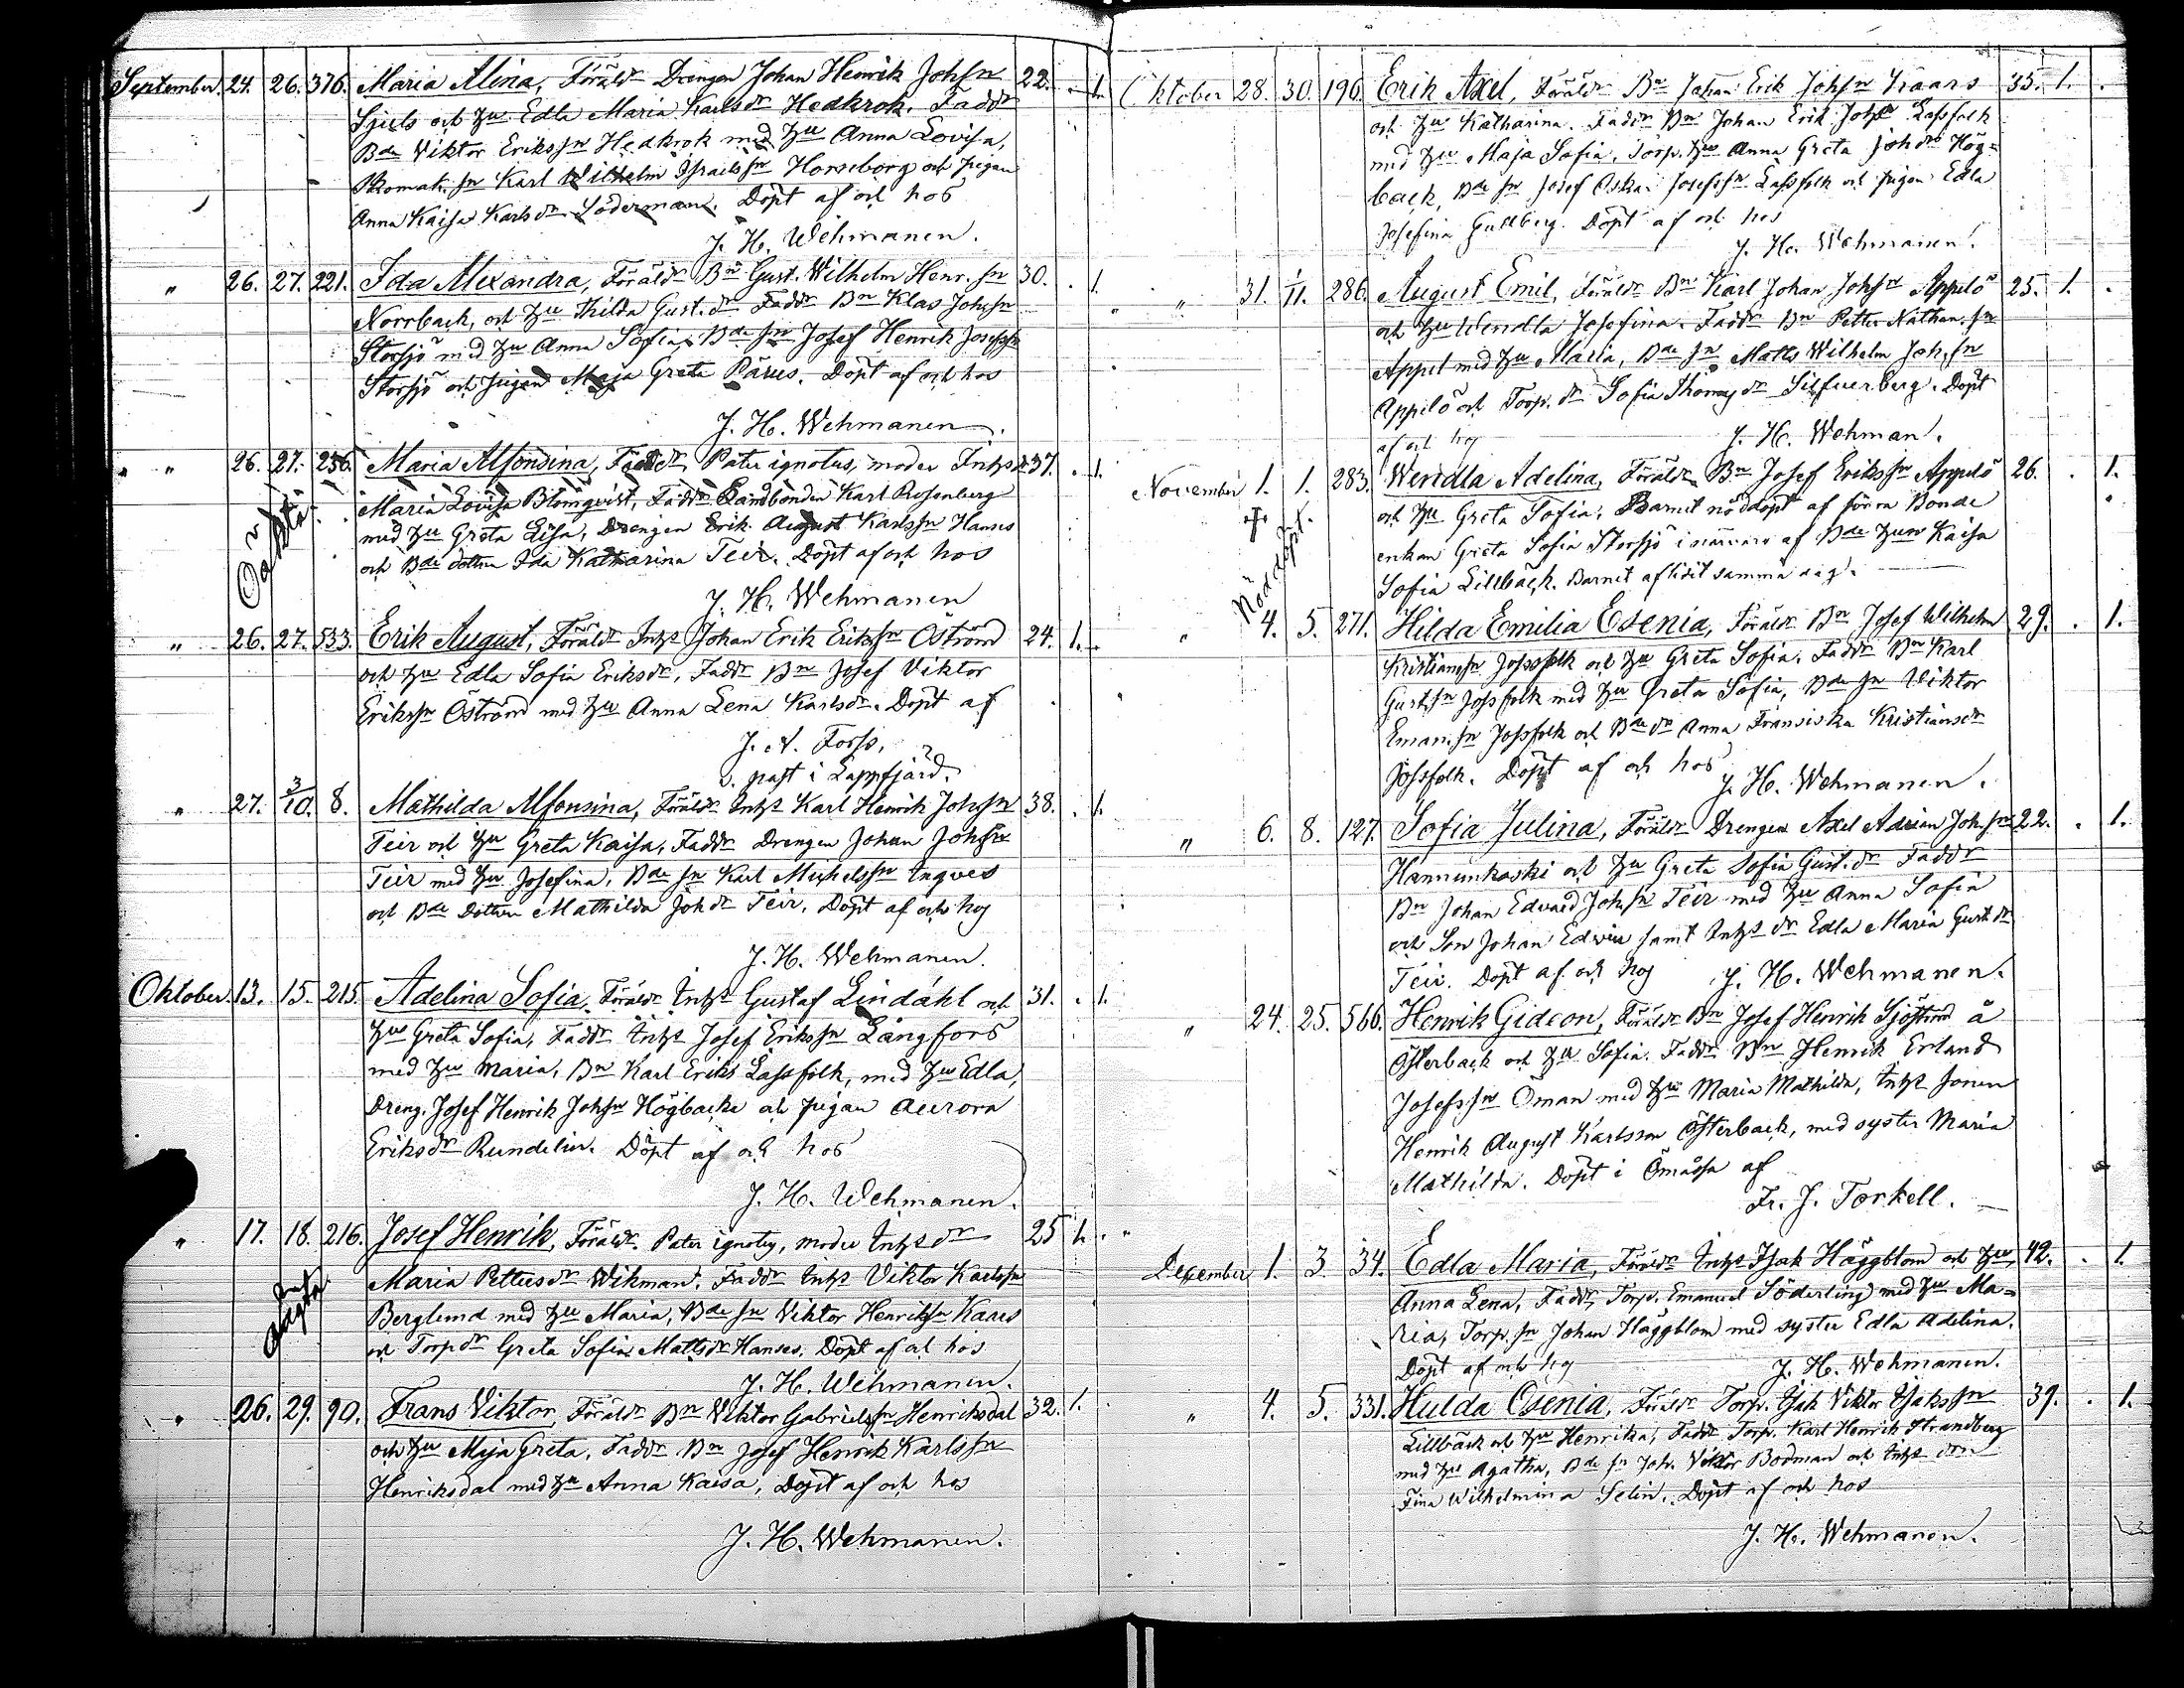 September. 24. 26. 376. Maria Alina, Föräldr Drengen Johan Henrik Johsn 22. . 1.
Sjuls och hu Edla Maria Karlsdr Hedkrok. Faddr
Bde Viktor Erikssn Hedkrok med hu Anna Lovisa,
Skomak. sn Karl Wilhelm Israelssn Horseborg och pigan
Anna Kaisa Karlsdr Söderman. Döpt af och hos
J. H. Wehmanen.
" 26. 27. 221. Ida Alexandra, Föräldr Bn Gust. Wilhelm Henr. sn 30. . 1.
Norrback, och hu Thilda Gust. dr Faddr Bn Klas Johsn
Storsjö med hu Anna Sofia, Bde sn Josef Henrik Josefssn
Storsjö och pigan Maja Greta Pärus. Döpt af och hos
J. H. Wehmanen.
" 26. 27. 256. Maria Alfonsina, Pater ignotus, moder Inhs dr 37. . 1.
Oäkta
Maria Lovisa Blomqvist, Faddr Landbonden Karl Rosenberg
med hu Greta Lisa, Drengen Erik August Karlssn Hanses
och Bde dottren Ida Katharina Teir. Döpt af och hos
J. H. Wehmanen
" 26. 27. 533. Erik August, Föräldr Inhs Johan Erik Erikssn Öström 24. 1. .
och hu Edla Sofia Eriksdr, Faddr Bn Josef Viktor
Erikssn Öström med hu Anna Lena Karlsdr. Döpt af
J. A. Forss,
v. past i Lappfjärd.
" 27. 3/10. 8. Mathilda Alfonsina, Föräldr Inhs Karl Henrik Johssn 38. . 1.
Teir och hu Greta Kaisa, Faddr Drengen Johan Johssn
Teir med hu Josefina, Bde sn Karl Mickelssn Ingves
och Bde Dottren Mathilda Johdr Teir. Döpt af och hos
J. H. Wehmanen.
Oktober. 13. 15. 215. Adelina Sofia, Föräldr Inhs Gustaf Lindahl och 31. . 1.
hu Greta Sofia, Faddr Inhs Josef Erikssn Långfors
med hu Maria, Bn Karl Eriks Lassfolk, med hu Edla,
Dreng. Josef Henrik Johsn Högbacka och pigan Aurora
Eriksdr Rundelin. Döpt af och hos
J. H. Wehmanen.
" 17. 18. 216. Josef Henrik, Föräldr. Pater ignotus, moder Inhs dr 25 1. .
Maria Pettersdr Wikman. Faddr Inhs Viktor Karlssn
Berglund med hu Maria, Bde sn Viktor Henrikssn Kaars
och Torp dr Greta Sofia Mattsdr Hanses. Döpt af och hos
J. H. Wehmanen.
" 26. 29. 90. Frans Viktor, Föräldr Bn Viktor Gabrielssn Henriksdal 32. 1.
och hu Maja Greta. Faddr Bn Josef Henrik Karlssn
Henriksdal med hu Anna Kaisa, Döpt af och hos
J. H. Wehmanen.
Oktober 28. 30. 196. Erik Axel, Föräldr Bn Johan Erik Johsn Kaars 35. 1. .
och hu Katharina. Faddr Bn Johan Erik Johs Lassfolk
med hu Maja Sofia, Torp. hu Anna Greta Johdr Hög=
back, Bde sn Josef Oskar Josefssn Lassfolk och pigan Edla
Josefina Gullberg. Döpt af och hos
J. H. Wehmanen.
" 31. 1/11. 286. August Emil, Föräldr Bn Karl Johan Johsn Appelö 25. 1. .
och hu Wendla Josefina. Faddr Bn Petter Nathan. sn
Appel med hu Maria, Bde sn Matts Wilhelm Joh. sn
Appelö och Torp. dr Sofia Thomasdr Silfverberg. Döpt
af och hos J. H. Wehman.
November 1. 1. 283. Wendla Adelina, Föräldr Bn Josef Erikssn Appelö 26. . 1.
† Nöddöpt.
och hu Greta Sofia, Barnet nöddöpt af förra Bonde
enkan Greta Sofia Storsjö i närvaro af Bde hun Kaisa
Sofia Lillback. Barnet aflidit samma dag.
" 4. 5. 271. Hilda Emilia Esenia, Föräldr Bn Josef Wilhelm 29. . 1.
Kristianssn Jossfolk och hu Greta Sofia. Faddr Bn Karl
Gustsn Jossfolk med hu Greta Sofia, Bde sn Viktor
Eman. sn Jossfolk och Bde dr Anna Fransiska Kristiansdr
Jossfolk. Döpt af och hos J. H. Wehmanen.
" 6. 8. 127. Sofia Julina, Föräldr Drengen Axel Adrian Joh. sn 22. . 1.
Hannunkoski och hu Greta Sofia Gust. dr Faddr
Bn Johan Edvard Joh. sn Teir med hu Anna Sofia
och Son Johan Edvin samt Inhs dr Edla Maria Gust. dr
Teir. Döpt af och hos J. H. Wehmanen.
" 24. 25. 566. Henrik Gideon, Föräldr Bn Josef Henrik Sjöstrand å
Österback och hu Sofia. Faddr Bn Henrik Erland
Josefssn Öman med hu Maria Mathilda, Inhs sonen
Henrik August Karlsson Österback, med syster Maria
Mathilda. Döpt i Ömossa af
Fr. J. Torkell.
December 1. 3. 34. Edla Maria, Föräldr Inhs Isak Häggblom och hu 42. . 1.
Anna Lena, Faddr, Torp. Emanuel Söderling med hu Ma=
ria, Torp. sn Johan Häggblom med syster Edla Adelina.
Döpt af och hos J. H. Wehmanen.
" 4. 5. 331. Hulda Esenia, Föräldr Torp. Isak Viktor Isakssn 39. . 1.
Lillback och hu Henrika, Faddr Torp. Karl Henrik Strandberg
med hu Agatha, Bde sn Joh. Viktor Bodman och Inhs
Fina Wilhelmina Selin. Döpt af och hos
J. H. Wehmanen.